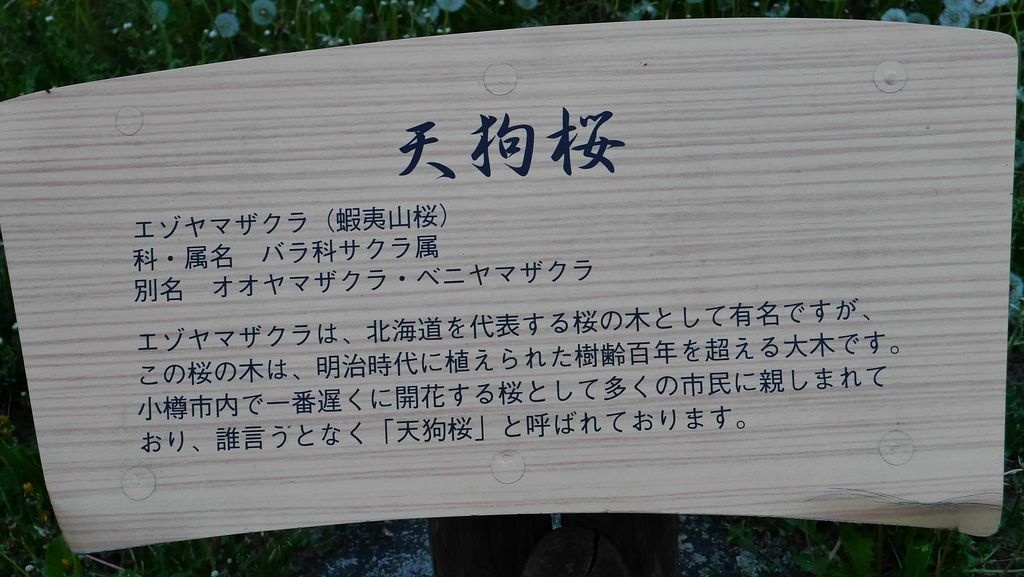 天狗桜
エゾヤマザクラ（蝦夷山桜）
科・属名　バラ科サクラ属
別名　オオヤマザクラ・ベニヤマザクラ
エゾヤマザクラは、北海道を代表する桜の木として有名ですが、
この桜の木は、明治時代に植えられた樹齢百年を超える大木です。
小樽市内で一番遅くに開花する桜として多くの市民に親しまれて
おり、誰言うとなく「天狗桜」と呼ばれております。